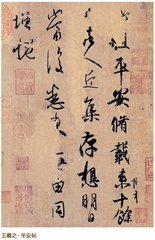 此粗平安脩載来十餘
日諸人近集存想明日
當復悉来無由同
增慨
王羲之·平安帖